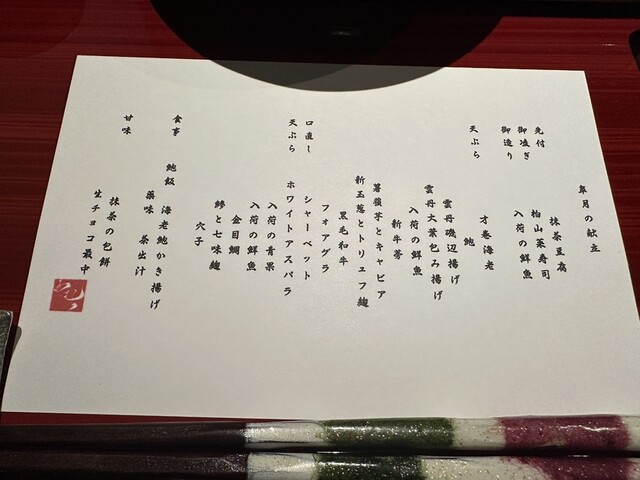 皐月の献立
先付 抹茶豆腐
御凌ぎ 柏山菜寿司
御造り 入荷の鮮魚
天ぷら 才巻海老
鮑
雲丹磯辺揚げ
雲丹大葉包み揚げ
入荷の鮮魚
新牛蒡
芋とキャビア
新玉葱とトリュフ麹
黒毛和牛
フォアグラ
口直し シャーベット
天ぷら ホワイトアスパラ
入荷の青果
入荷の鮮魚
金目鯛
鯵と七味麹
穴子
食事 鮑飯 海老鮑かき揚げ
薬味 茶出汁
甘味 抹茶の包餅
生チョコ最中